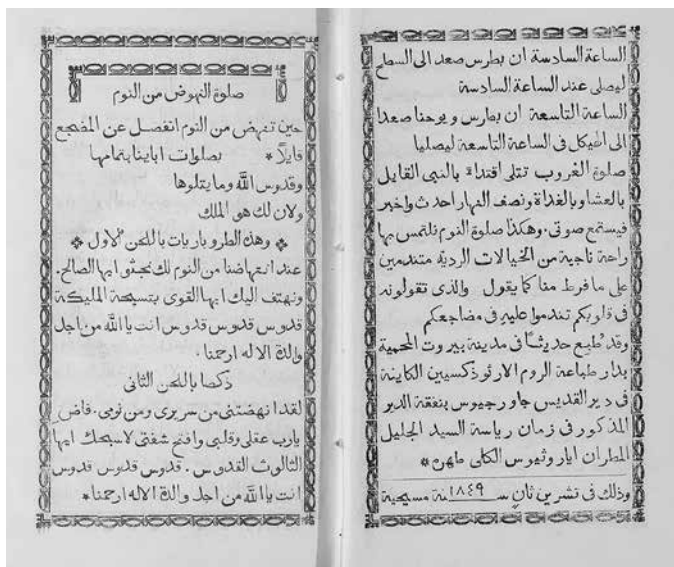 الساعة السادسة ان بطرس صعد الى السطح
ليصلى عند الساعة السادسة
الساعة التاسعة ان بطرس ويوحنا صعدا
الى الهيكل فى الساعة التاسعة ليصليا
صلوة الغروب تتلى اقتداءً بالنبى القايل
بالعشا وبالغداة ونصف النهار احدث واخبر
فيستمع صوتى. وهكذا صلوة النوم نلتمس بها
راحة ناجية من الخيالات الرديه متندمين
على ما فرط منا كما يقول والذى تقولونه
فى قلوبكم تندموا عليه فى مضاجعكم
وقد طبع حديثًا فى مدينة بيروت المحمية
بدار طباعة الروم الارثوذكسيين الكاينة
فى دير القديس جاورجيوس بنفقة الدير
المذكور فى زمان رياسة السيد الجليل
المطران اياروثيوس الكلى طهره *
وذلك فى تشرين ثان سـ ١٨٤٩ ـنة مسيحية
صلوة النهوض من النوم
حين تنهض من النوم انفصل عن المضجع
قايلاً * بصلوات اباينا بتمامها
وقدوس الله وما يتلوها
ولان لك هو الملك
* وهذه الطروباريات باللحن الاول *
عند انتهاضنا من النوم لك نجثو ايها الصالح.
ونهتف اليك ايها القوى بتسبحة المليكة
قدوس قدوس قدوس انت يا الله من اجل
والدة الاله ارحمنا.
ذكصا باللحن الثانى
لقد انهضتنى من سريرى ومن نومى. فاضي
يارب عقلى وقلبى وافتح شفتى لاسبحك ايها
الثالوث القدوس. قدوس قدوس قدوس
انت يا الله من اجل والدة الاله ارحمنا *